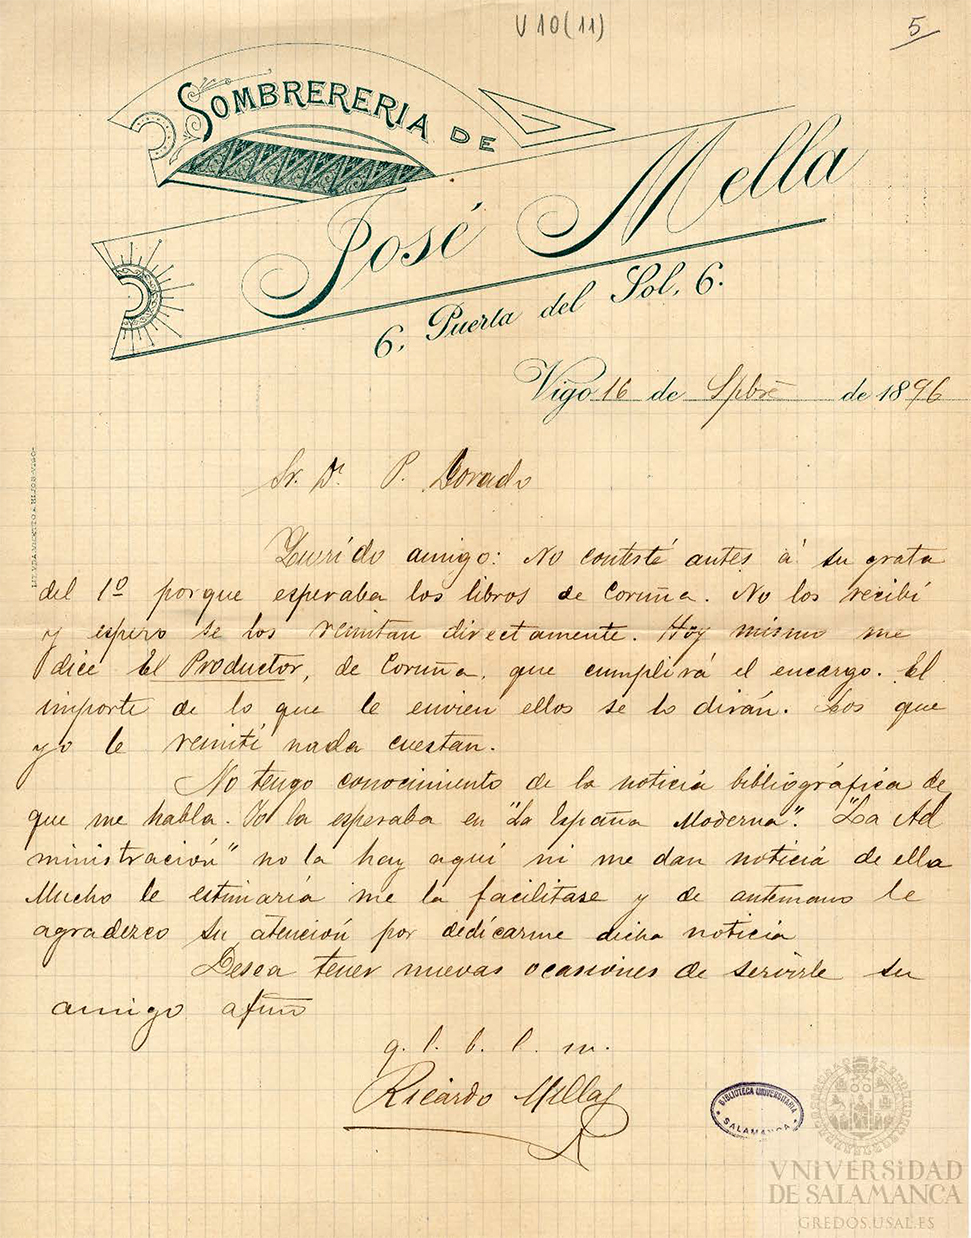 V 10 (11)
5
SOMBRERERIA DE
José Mella
6, Puerta del Sol, 6.
Vigo 16 de Spbre de 1896
Sr. Dn. P. Dorado
Querido amigo: No contesté antes á su grata
del 1º porque esperaba los libros de Coruña. No los recibí
y espero se los remitan directamente. Hoy mismo me
dice El Productor, de Coruña, que cumplirá el encargo. El
importe de lo que le envien ellos se lo dirán. Los que
yo le remití nada cuestan.
No tengo conocimiento de la noticia bibliográfica de
que me habla. Yo la esperaba en "La España Moderna". "La Ad
ministración" no la hay aquí ni me dan noticia de ella
Mucho le estimaría me la facilitase y de antemano le
agradezco su atención por dedicarme dicha noticia
Desea tener nuevas ocasiones de servirle su
amigo afmo
q. l. b. l. m.
Ricardo Mella
BIBLIOTECA UNIVERSITARIA
SALAMANCA
VNiVERSiDAD
DE SALAMANCA
GREDOS.USAL.ES